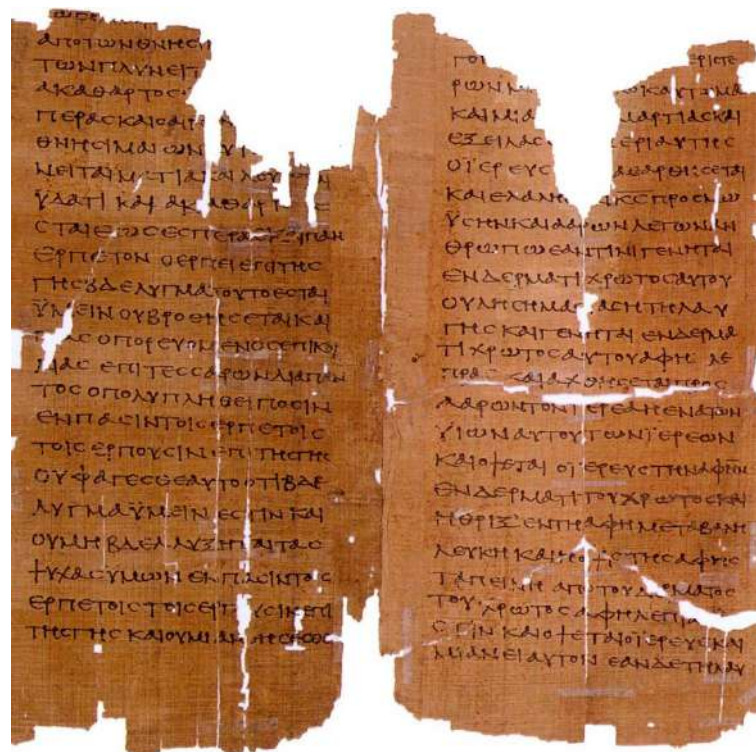 ΑΠΟΤΩΝΘΝΗCΙ
ΤΩΝΠΛΥΝΕΙΤ
ΑΚΑΘΑΡΤΟC
ΠΕΡΑCΚΑΙΟΑΙΡ
ΘΝΗCΙΜΑΙΩΝ
ΝΕΙΤΑΙΜΑΤΙΑΚΑΙΛΟΥ
ΫΔΑΤΙ ΚΑΙ ΑΚΑΘΑΡΤ
CΤΑΙΕΩCΕCΠΕΡΑCΚΑΙΠΑΝ
ΕΡΠΕΤΟΝ ΟΕΡΠΕΙΕΠΙΤΗC
ΓΗCΒΔΕΛΥΓΜΑΤΟΥΤΟΕCΤΑΙ
ΫΜΕΙΝ ΟΥΒΡΟΘΗCΕΤΑΙΚΑΙ
ΑCΟΠΟΡΕΥΟΜΕΝΟCΕΠΙΚΟΙ
ΛΙΑC ΕΠΙΤΕCCΑΡΩΝΔΙΑΠΑΝ
ΤΟCΟΠΟΛΥΠΛΗΘΕΙΠΟCΙΝ
ΕΝΠΑCΙΝΤΟΙCΕΡΠΕΤΟΙC
ΤΟΙCΕΡΠΟΥCΙΝΕΠΙΤΗCΓΗC
ΟΥΦΑΓΕCΘΕΑΥΤΟΟΤΙΒΔΕ
ΛΥΓΜΑΫΜΕΙΝΕCΤΙΝΚΑΙ
ΟΥΜΗΒΔΕΛΛΥΞΗΤΑΙΤΑC
ΨΥΧΑCΥΜΩΝΕΝΠΑCΙΝΤΟΙC
ΕΡΠΕΤΟΙCΤΟΙCΕΡΠΟΥCΙΝΕΠΙ
ΤΗCΓΗC ΚΑΙΟΥΜΙΑΝΘΗCΕCΘΕ
ΓΟΙ ΕΡΙCΤΕ
ΡΩΝΜ ΩΚΑΥΤΩΜΑ
ΚΑΙΜΙΑ ΜΑΡΤΙΑCΚΑΙ
ΕΞΕΙΛΑC ΕΡΙΑΥΤΗC
ΟΪΕΡΕΥC ΑΘΑΡΘΗCΕΤΑΙ
ΚΑΙΕΛΑΛΗ ΚCΠΡΟCΜΩ
ΫCΗΝΚΑΙΑΑΡΩΝΛΕΓΩΝΑΝ
ΘΡΩΠΩΕΑΝΤΙΝΙΓΕΝΗΤΑΙ
ΕΝΔΕΡΜΑΤΙΧΡΩΤΟCΑΥΤΟΥ
ΟΥΛΗCΗΜΑCΙΑCΗΤΗΛΑΥ
ΓΗCΚΑΙΓΕΝΗΤΑΙ ΕΝΔΕΡΜΑ
ΤΙΧΡΩΤΟCΑΥΤΟΥΑΦΗ ΛΕ
ΠΡΑC ΚΑΙΑΧΘΗCΕΤΑΙΠΡΟC
ΑΑΡΩΝΤΟΝΪΕΡΕΑΗΕΝΑΤΩΝ
ΥΙΩΝΑΥΤΟΥΤΩΝΪΕΡΕΩΝ
ΚΑΙΟΨΕΤΑΙ ΟΪΕΡΕΥCΤΗΝΑΦΗΝ
ΕΝΔΕΡΜΑΤΙΤΟΥΧΡΩΤΟCΚΑΙ
ΗΘΡΙΞΕΝΤΗΑΦΗΜΕΤΑΒΑΛΗ
ΛΕΥΚΗΚΑΙΗΟΨΙCΤΗCΑΦΗC
ΤΑΠΕΙΝΗ ΑΠΟΤΟΥΔΕΡΜΑΤΟC
ΤΟΥΧΡΩΤΟCΑΦΗΛΕΠΡΑ
CΤΙΝ ΚΑΙΟΨΕΤΑΙΟΪΕΡΕΥCΚΑΙ
ΜΙΑΝΕΙΑΥΤΟΝ ΕΑΝΔΕΤΗΛΑΥ